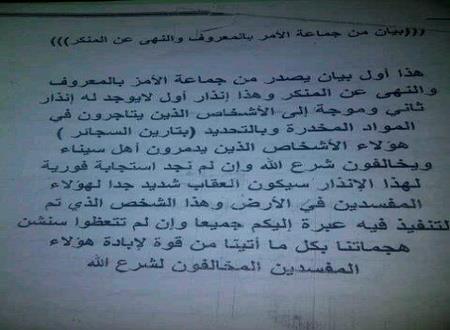 (((بيان من جماعة الأمر بالمعروف والنهى عن المنكر)))
هذا أول بيان يصدر من جماعة الأمز بالمعروف
والنهى عن المنكر وهذا إنذار أول لايوجد له إنذار
ثاني وموجة إلى الأشخاص الذين يتاجرون في
المواد المخدرة وبالتحديد (بتارين السجائر )
هؤلاء الأشخاص الذين يدمرون أهل سيناء
ويخالفون شرع الله وإن لم نجد استجابة فورية
لهذا الإنذار سيكون العقاب شديد جدا لهؤلاء
المفسدين في الأرض وهذا الشخص الذي تم
لتنفيذ فيه عبرة إليكم جميعا وإن لم تتعظوا سنشن
هجماتنا بكل ما أتيتا من قوة لإبادة هؤلاء
المفسدين المخالفون لشرع الله